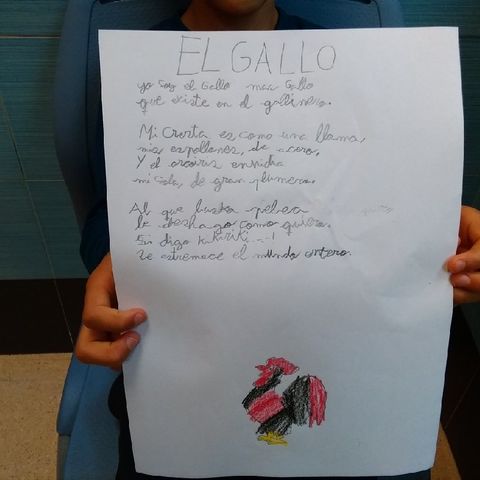 EL GALLO
yo soy el Gallo mas Gallo
que existe en el gallinero.
Mi Cresta es como una llama,
mis espollones, de acero.
Y el arcoiris envidia
mi Cola, de gran plumero.
Al que busta pelea
le deshago como quiero.
Si digo kikiriki...!
Se estremece el mundo entero.